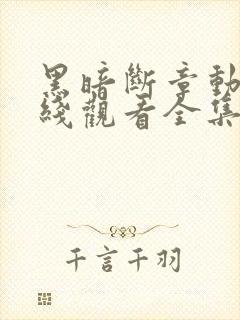 黑暗斷章動
綫觀看全集
千言千羽